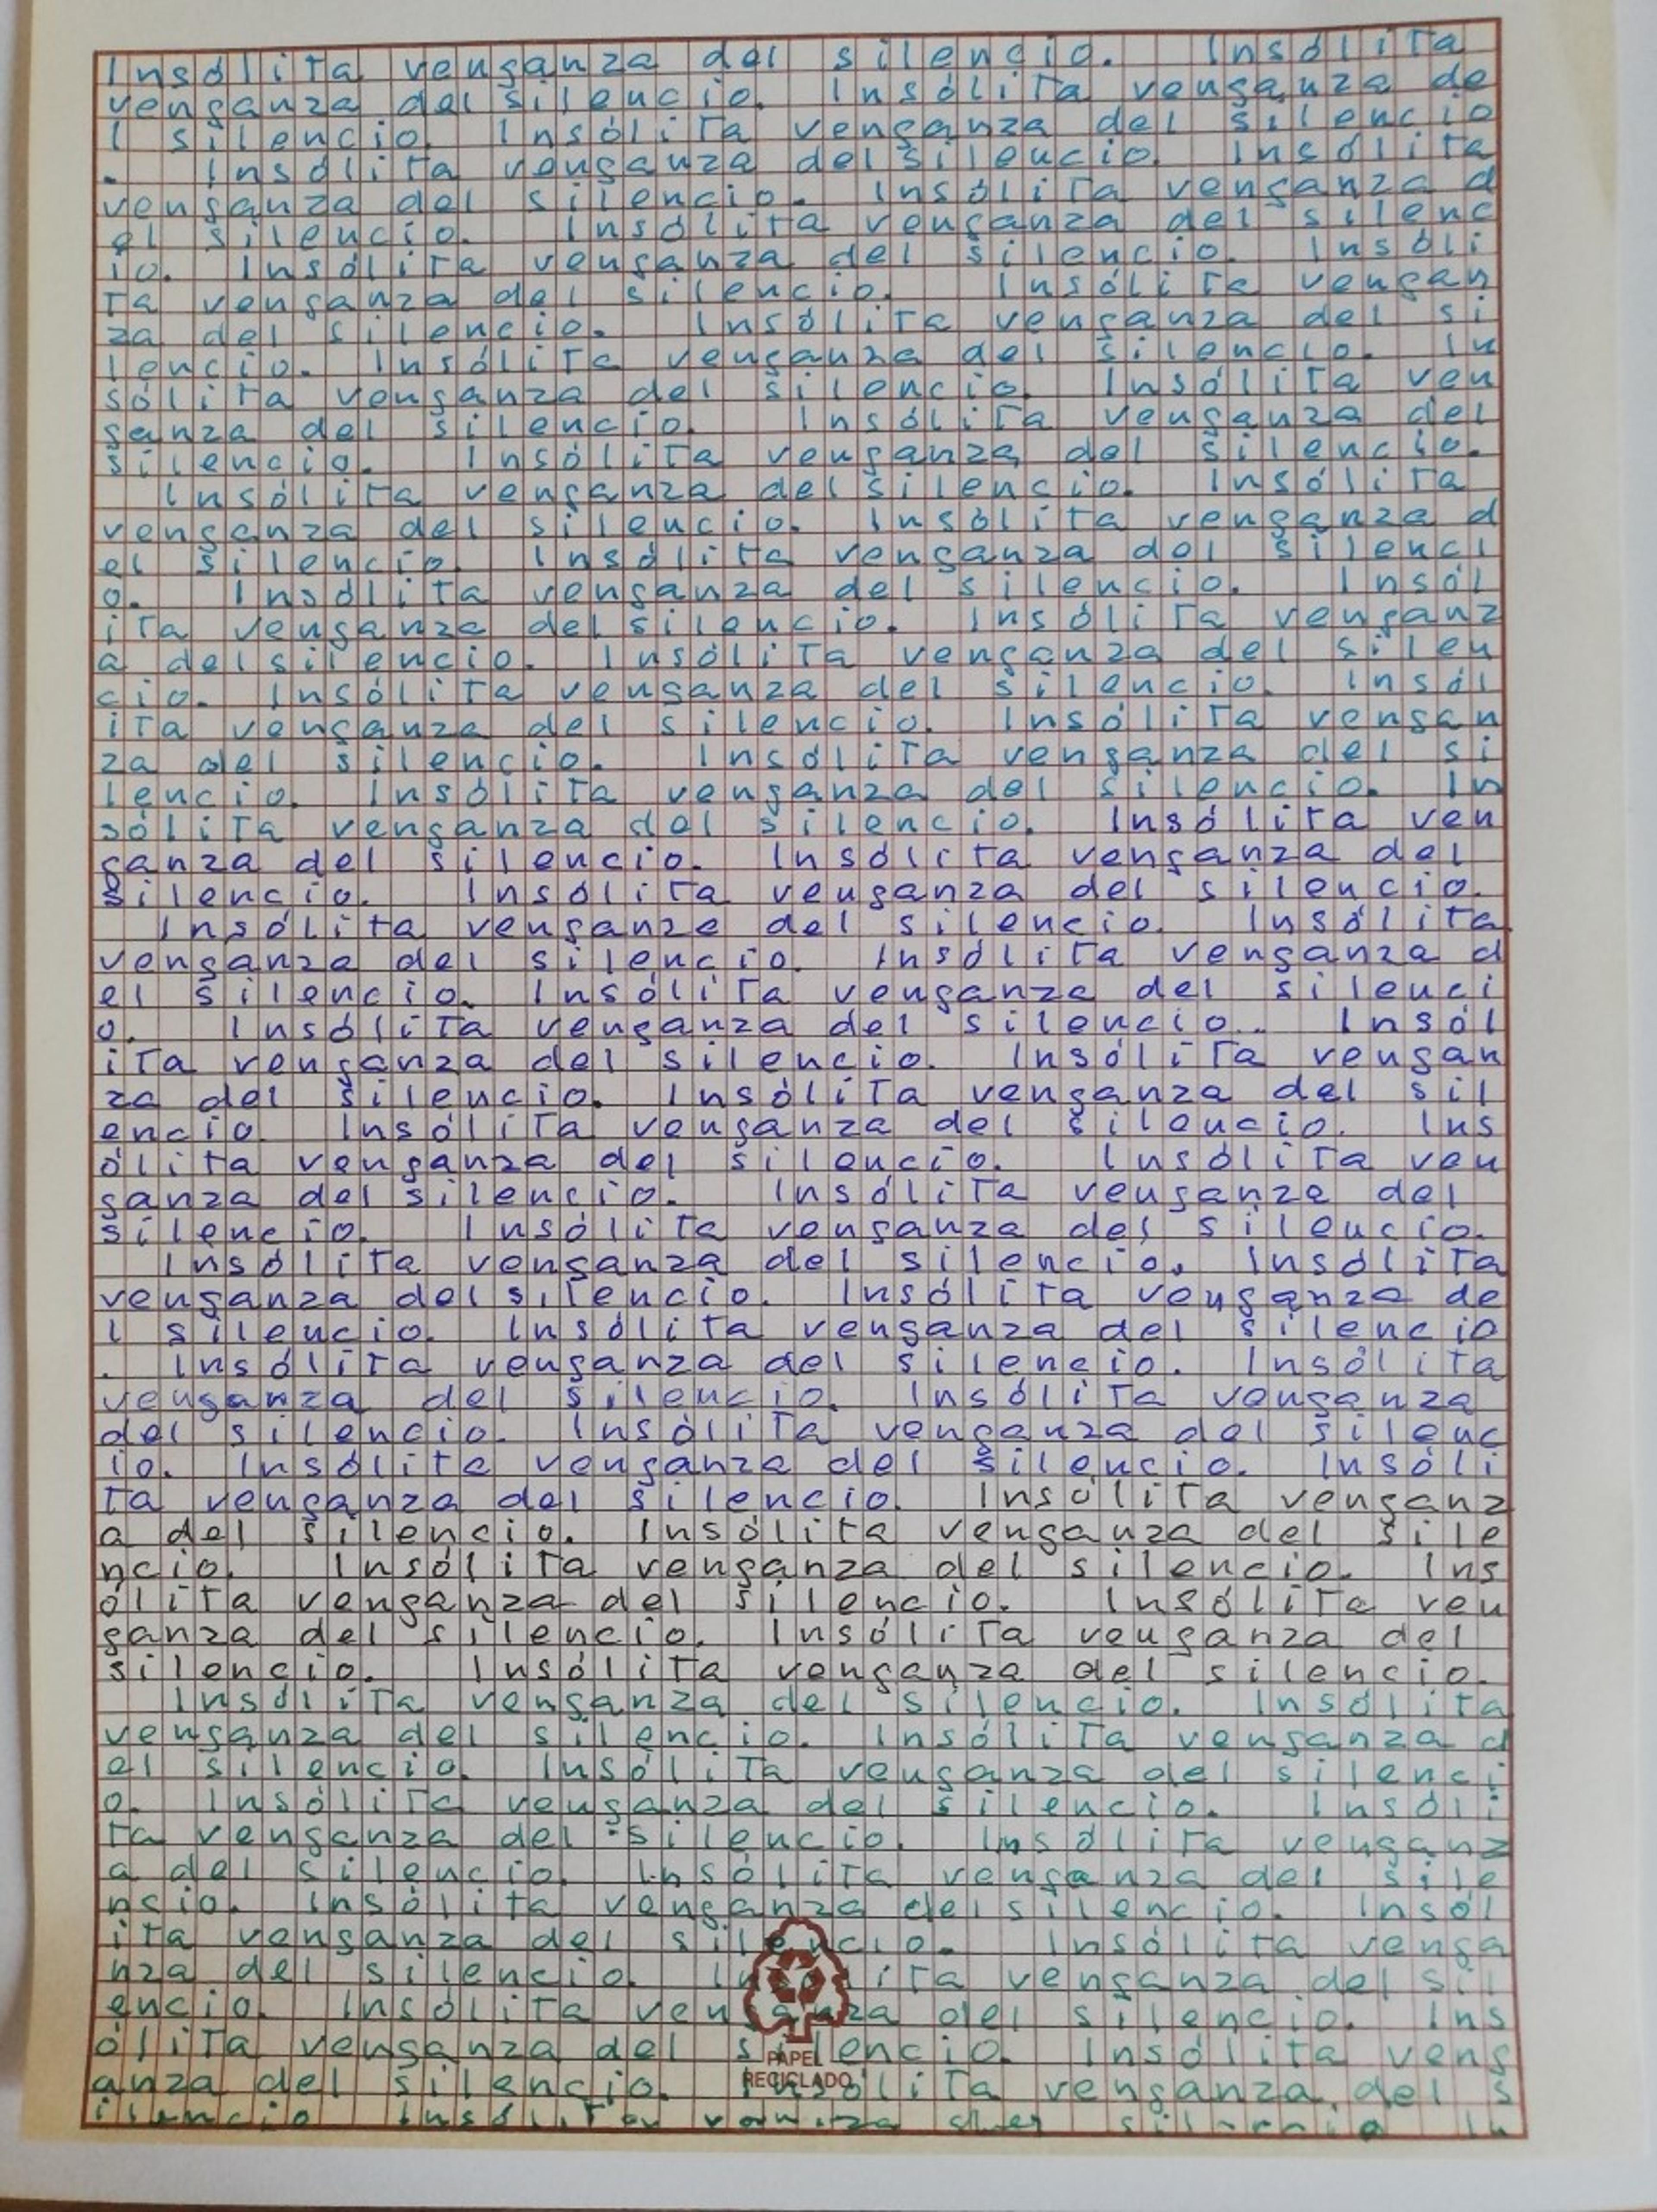 Insólita venganza del silencio. Insólita
venganza del silencio. Insólita venganza de
l silencio. Insólita venganza del silencio
. Insólita venganza del silencio. Insólita
venganza del silencio. Insólita venganza d
el silencio. Insólita venganza del silenc
io. Insólita venganza del silencio. Insóli
ta venganza del silencio. Insólita vengan
za del silencio. Insólita venganza del si
lencio. Insólita venganza del silencio. In
sólita venganza del silencio. Insólita ven
ganza del silencio. Insólita venganza del
silencio. Insólita venganza del silencio.
Insólita venganza del silencio. Insólita
venganza del silencio. Insólita venganza d
el silencio. Insólita venganza del silenci
o. Insólita venganza del silencio. Insól
ita venganza del silencio. Insólita venganz
a del silencio. Insólita venganza del silen
cio. Insólita venganza del silencio. Insól
ita venganza del silencio. Insólita vengan
za del silencio. Insólita venganza del si
lencio. Insólita venganza del silencio. In
sólita venganza del silencio. Insólita ven
ganza del silencio. Insólita venganza del
silencio. Insólita venganza del silencio.
Insólita venganza del silencio. Insólita
venganza del silencio. Insólita venganza d
el silencio. Insólita venganza del silenci
o. Insólita venganza del silencio. Insól
ita venganza del silencio. Insólita vengan
za del silencio. Insólita venganza del sil
encio. Insólita venganza del silencio. Ins
ólita venganza del silencio. Insólita ven
ganza del silencio. Insólita venganza del
silencio. Insólita venganza del silencio.
Insólita venganza del silencio. Insólita
venganza del silencio. Insólita venganza de
l silencio. Insólita venganza del silencio
. Insólita venganza del silencio. Insólita
venganza del silencio. Insólita venganza
del silencio. Insólita venganza del silenc
io. Insólita venganza del silencio. Insóli
ta venganza del silencio. Insólita venganz
a del silencio. Insólita venganza del sile
ncio. Insólita venganza del silencio. Ins
ólita venganza del silencio. Insólita ven
ganza del silencio. Insólita venganza del
silencio. Insólita venganza del silencio.
Insólita venganza del silencio. Insólita
venganza del silencio. Insólita venganza d
el silencio. Insólita venganza del silenci
o. Insólita venganza del silencio. Insóli
ta venganza del silencio. Insólita venganz
a del silencio. Insólita venganza del sile
ncio. Insólita venganza del silencio. Insól
ita venganza del silencio. Insólita venga
nza del silencio. Insólita venganza del sil
encio. Insólita venganza del silencio. Ins
ólita venganza del silencio. Insólita veng
PAPEL
anza del silencio. Insólita venganza del s
RECICLADO